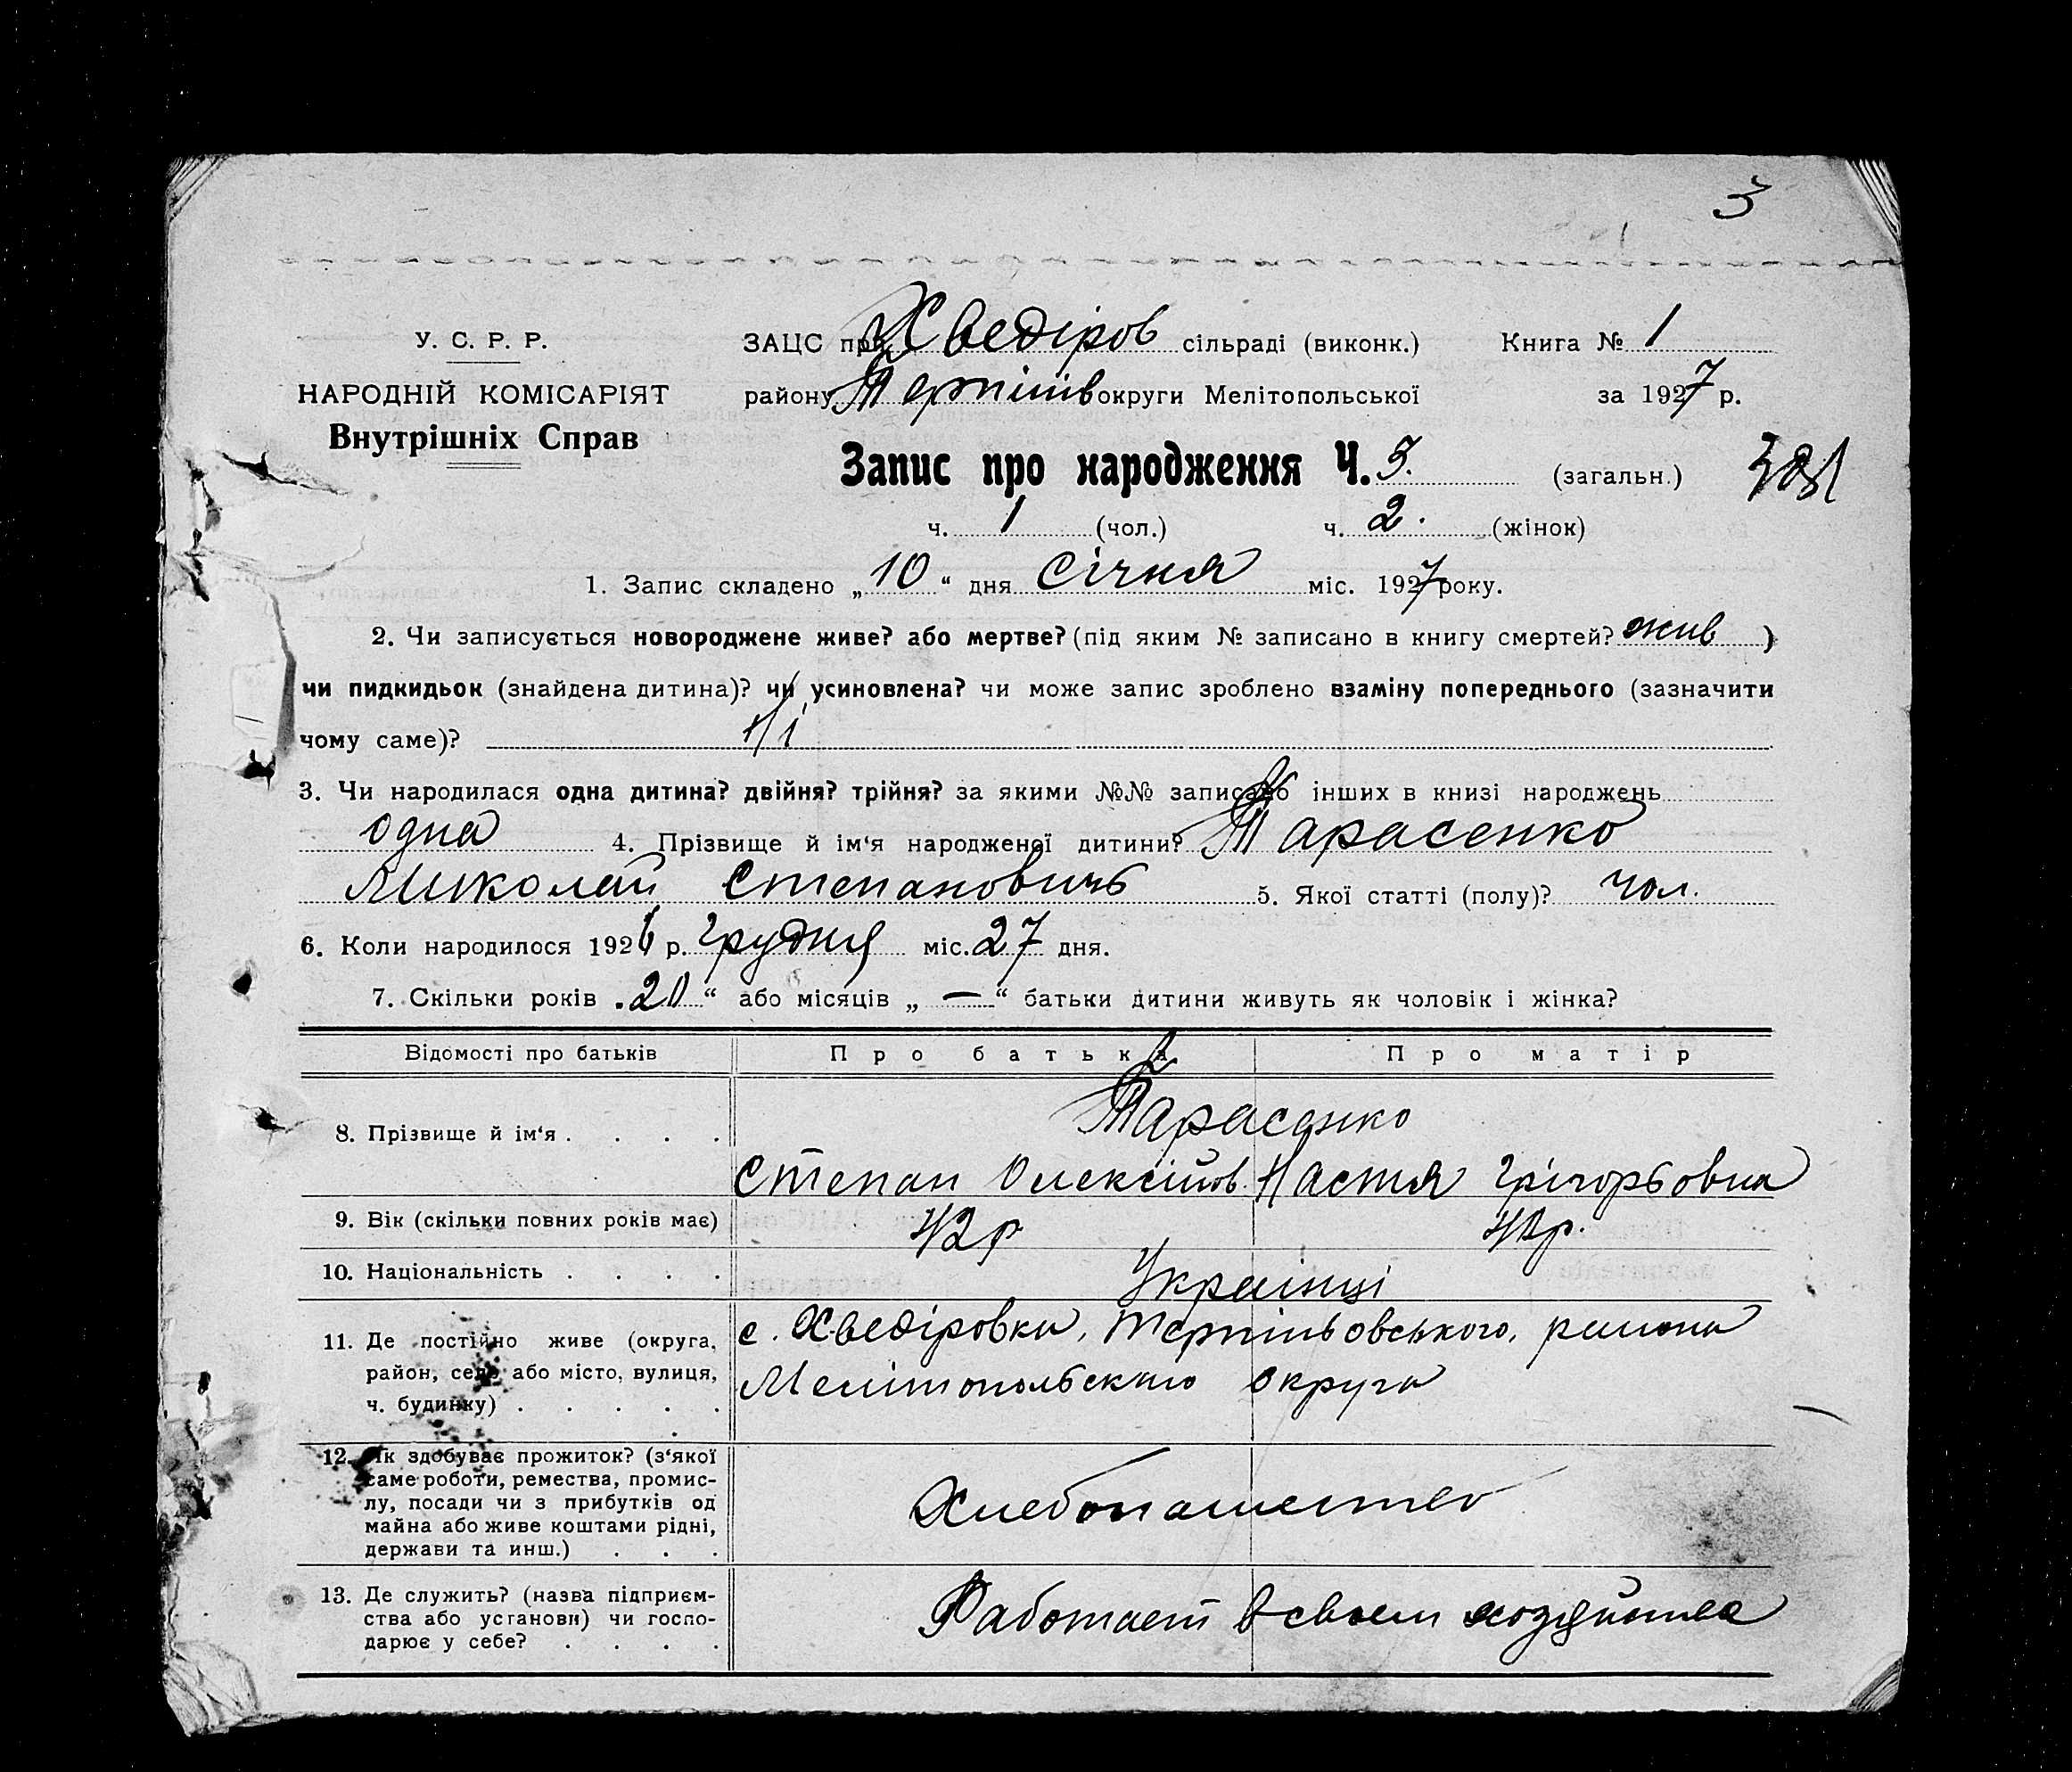 3
У. С. Р. Р.
НАРОДНІЙ КОМІСАРІЯТ
Внутрішніх Справ
ЗАЦС при Хведіров сільраді (виконк.) Книга № 1
району Терпінів округи Мелітопольської за 1927 р.
Запис про народження Ч. 3. (загальн.)
ч. 1 (чол.) ч. 2. (жінок)
1. Запис складено „10“ дня Січня міс. 1927 року.
2. Чи записується новороджене живе? або мертве? (під яким № записано в книгу смертей? жив )
чи пидкидьок (знайдена дитина)? чи усиновлена? чи може запис зроблено взаміну попереднього (зазначити
чому саме)? Ні
3. Чи народилася одна дитина? двійня? трійня? за якими №№ записано інших в книзі народжень
одна 4. Прізвище й ім‘я народженої дитини? Тарасенко
Миколай Степановичъ 5. Якої статті (полу)? чол.
6. Коли народилося 1926 р. грудня міс. 27 дня.
7. Скільки років „20“ або місяців „—“ батьки дитини живуть як чоловік і жінка?
Відомості про батьків Про батька Про матір
8. Прізвище й ім‘я . . . . Тарасенко
Степан Олексійов. Настя Грігорьовна
9. Вік (скільки повних років має) 42р
10. Національність . . . . Украінці
11. Де постійно живе (округа, с. Хведіровки, Терпіньовського, района
район, село або місто, вулиця, Мелітопольского округа
ч. будинку) . . . . .
12. Як здобуває прожиток? (з‘якої
саме роботи, ремества, промис-
лу, посади чи з прибутків од Хлебопашество
майна або живе коштами рідні,
держави та инш.) . . .
13. Де служить? (назва підприєм- Работает в своем хозяйстве
ства або установи) чи госпо-
дарює у себе? . . . .